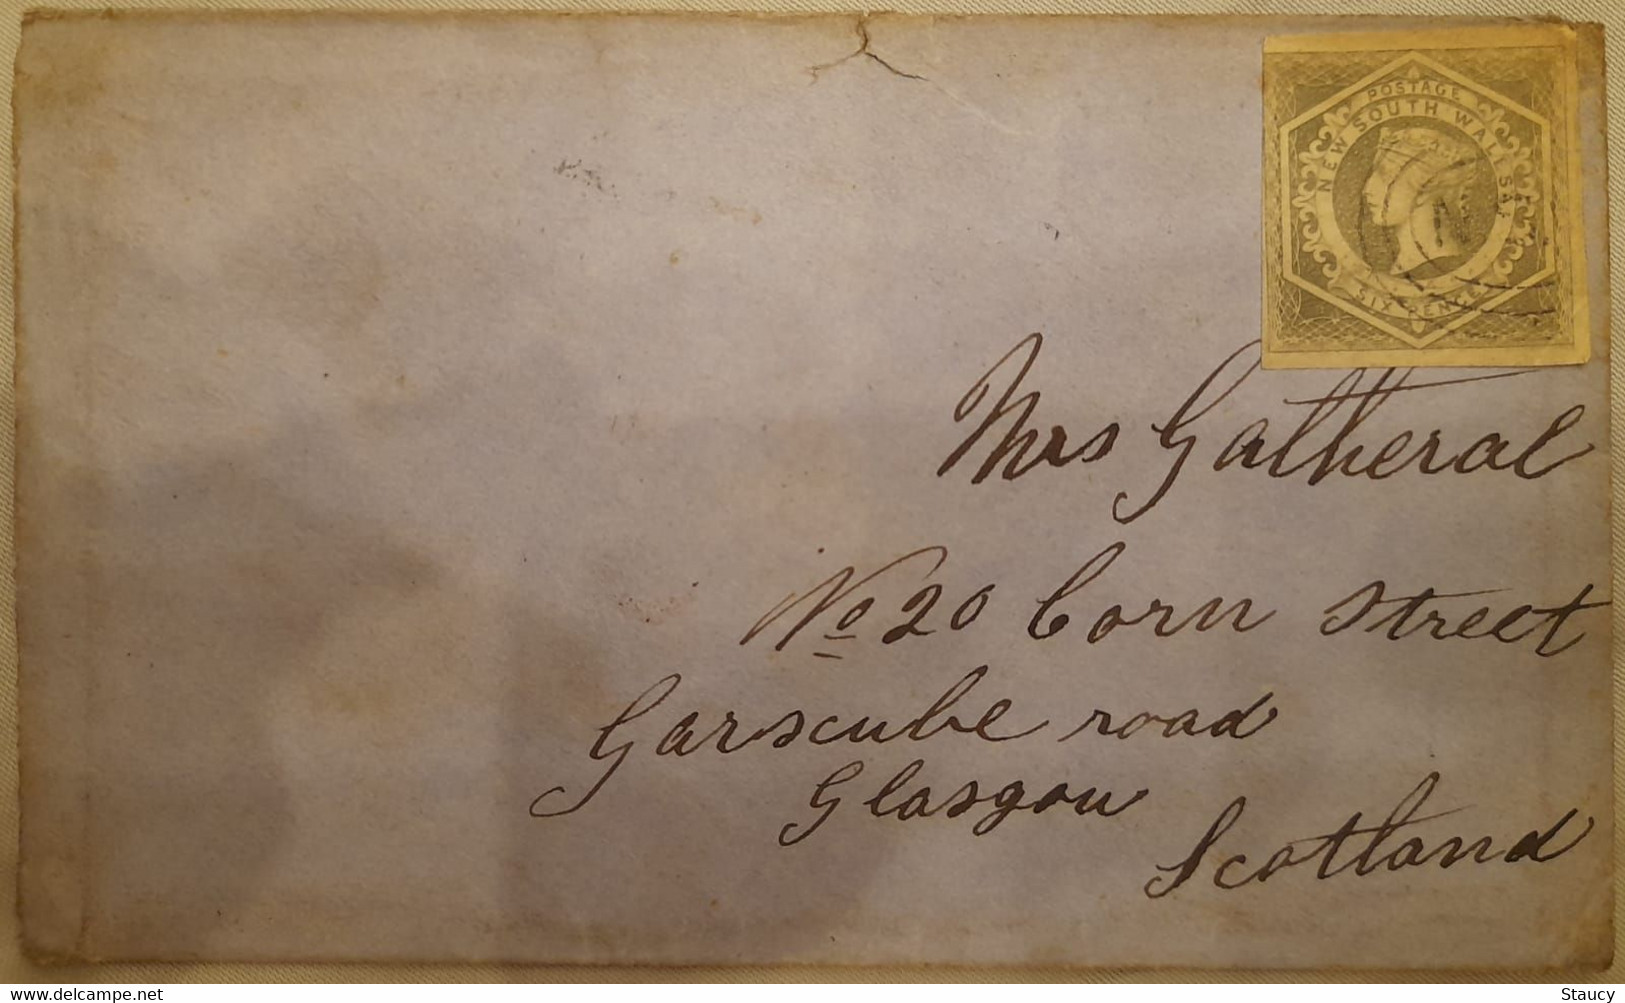 POSTAGE
NEW SOUTH WALES
SIX PENCE
Mrs Gatheral
No 20 Corn Street
Garscube road
Glasgow
Scotland
delcampe.net
Staucy